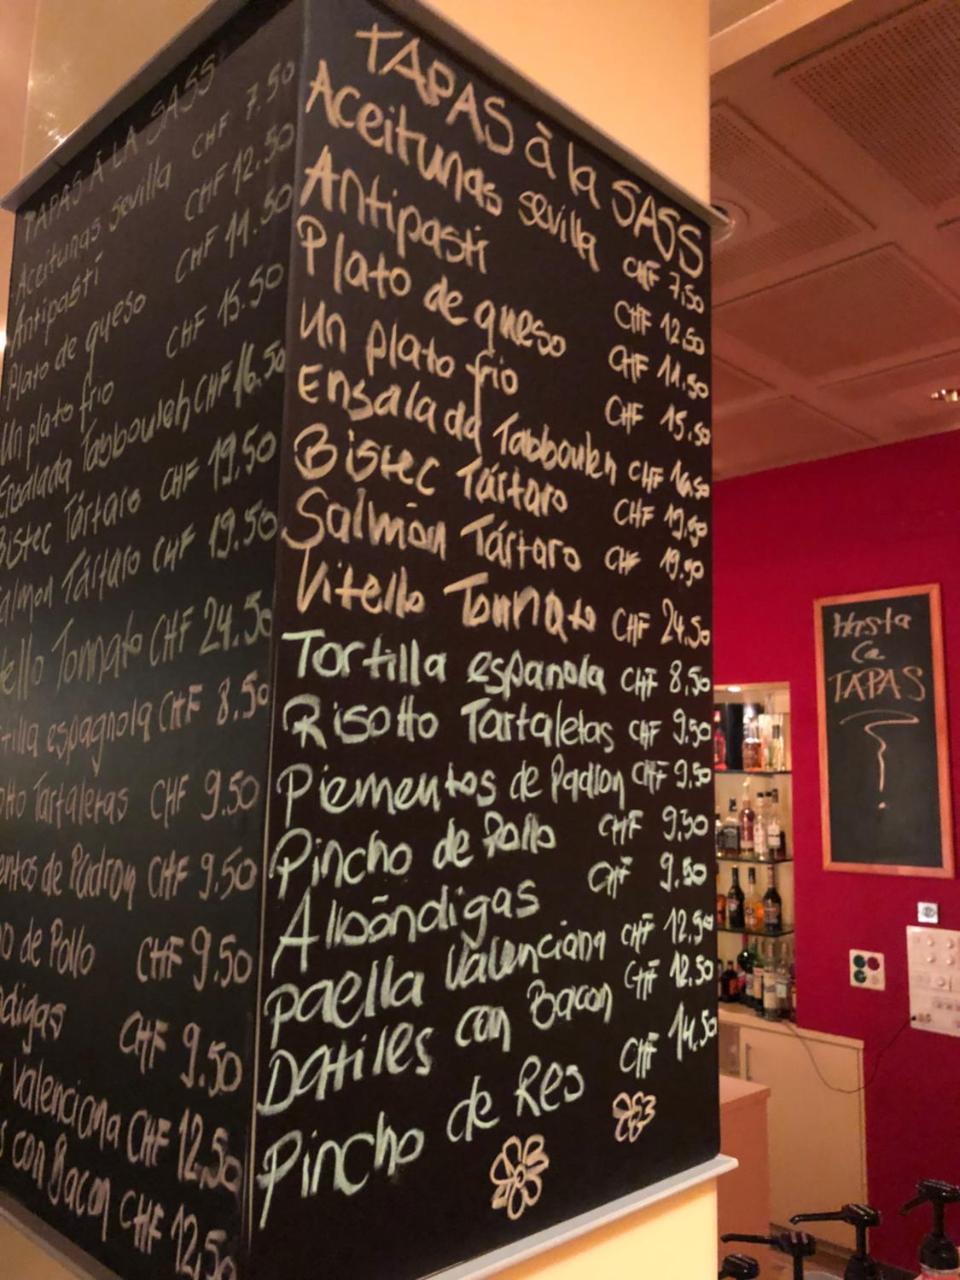 TAPAS À LA SASS
Aceitunas sevilla CHF 7.50
Antipasti CHF 12.50
Plato de queso CHF 14.50
Un plato frio CHF 15.50
Ensalada Tabbouleh CHF 16.50
Bistec Tártaro CHF 19.50
Salmon Tártaro CHF 19.50
tello Tonnato CHF 24.50
tilla espagnola CHF 8.50
otto Tartaletas CHF 9.50
entos de Padron CHF 9.50
o de Pollo CHF 9.50
digas CHF 9.50
Valenciana CHF 12.50
s con Bacon CHF 12,50
TAPAS à la SASS
Aceitunas sevilla CHF 7,50
Antipasti CHF 12.50
Plato de queso CHF 14.50
Un plato frio CHF 15,50
Ensalada Tabbouleh CHF 16,50
Bistec Tártaro CHF 19,50
Salmón Tártaro CHF 19.50
Vitello Tonnato CHF 24,50
Tortilla espanola CHF 8,50
Risotto Tartaletas CHF 9.50
Piementos de Padron CHF 9,50
Pincho de Pollo CHF 9.50
Albóndigas CHF 9.50
Paella Valenciana CHF 12,50
Datiles con Bacon CHF 12.50
Pincho de Res CHF 14.50
Hasta
la
TAPAS